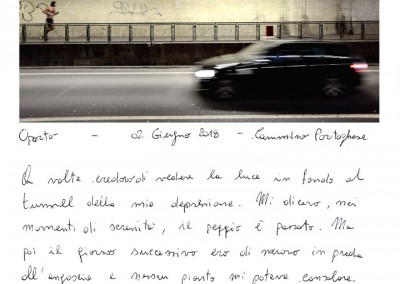 Oporto - 02 Giugno 2018 - Cammino Portoghese
A volte credevo di vedere la luce in fondo al
tunnel della mia depressione. Mi dicevo, nei
momenti di serenità, il peggio è passato. Ma
poi il giorno successivo ero di nuovo in preda
all'angoscia e nessun pianto mi poteva consolare.